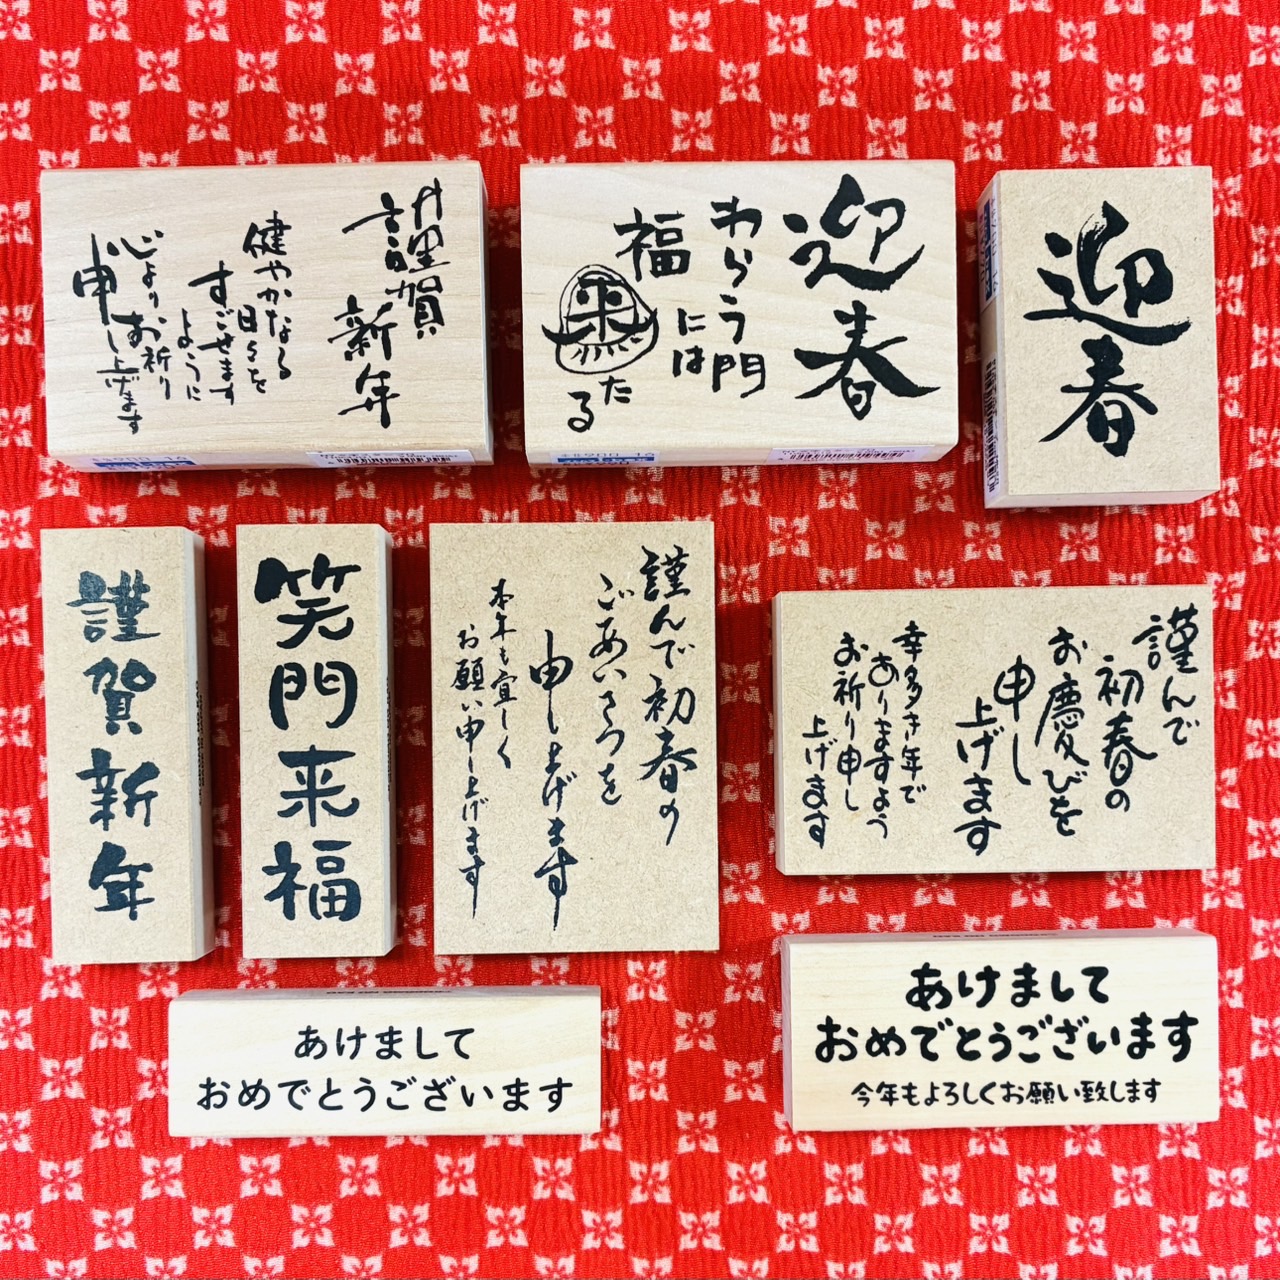 謹賀
新年
健やかなる
日々を
すごせます
ように
心より、お祈り
申し上げます
迎春
わらう門
には
福
来
たる
迎春
謹賀新年
笑門来福
謹んで初春の
ごあいさつを
申し上げます
本年も宜しく
お願い申し上げます
謹んで
初春の
お慶びを
申し
上げます
幸多き年で
ありますよう
お祈り申し
上げます
あけまして
おめでとうございます
あけまして
おめでとうございます
今年もよろしくお願い致します